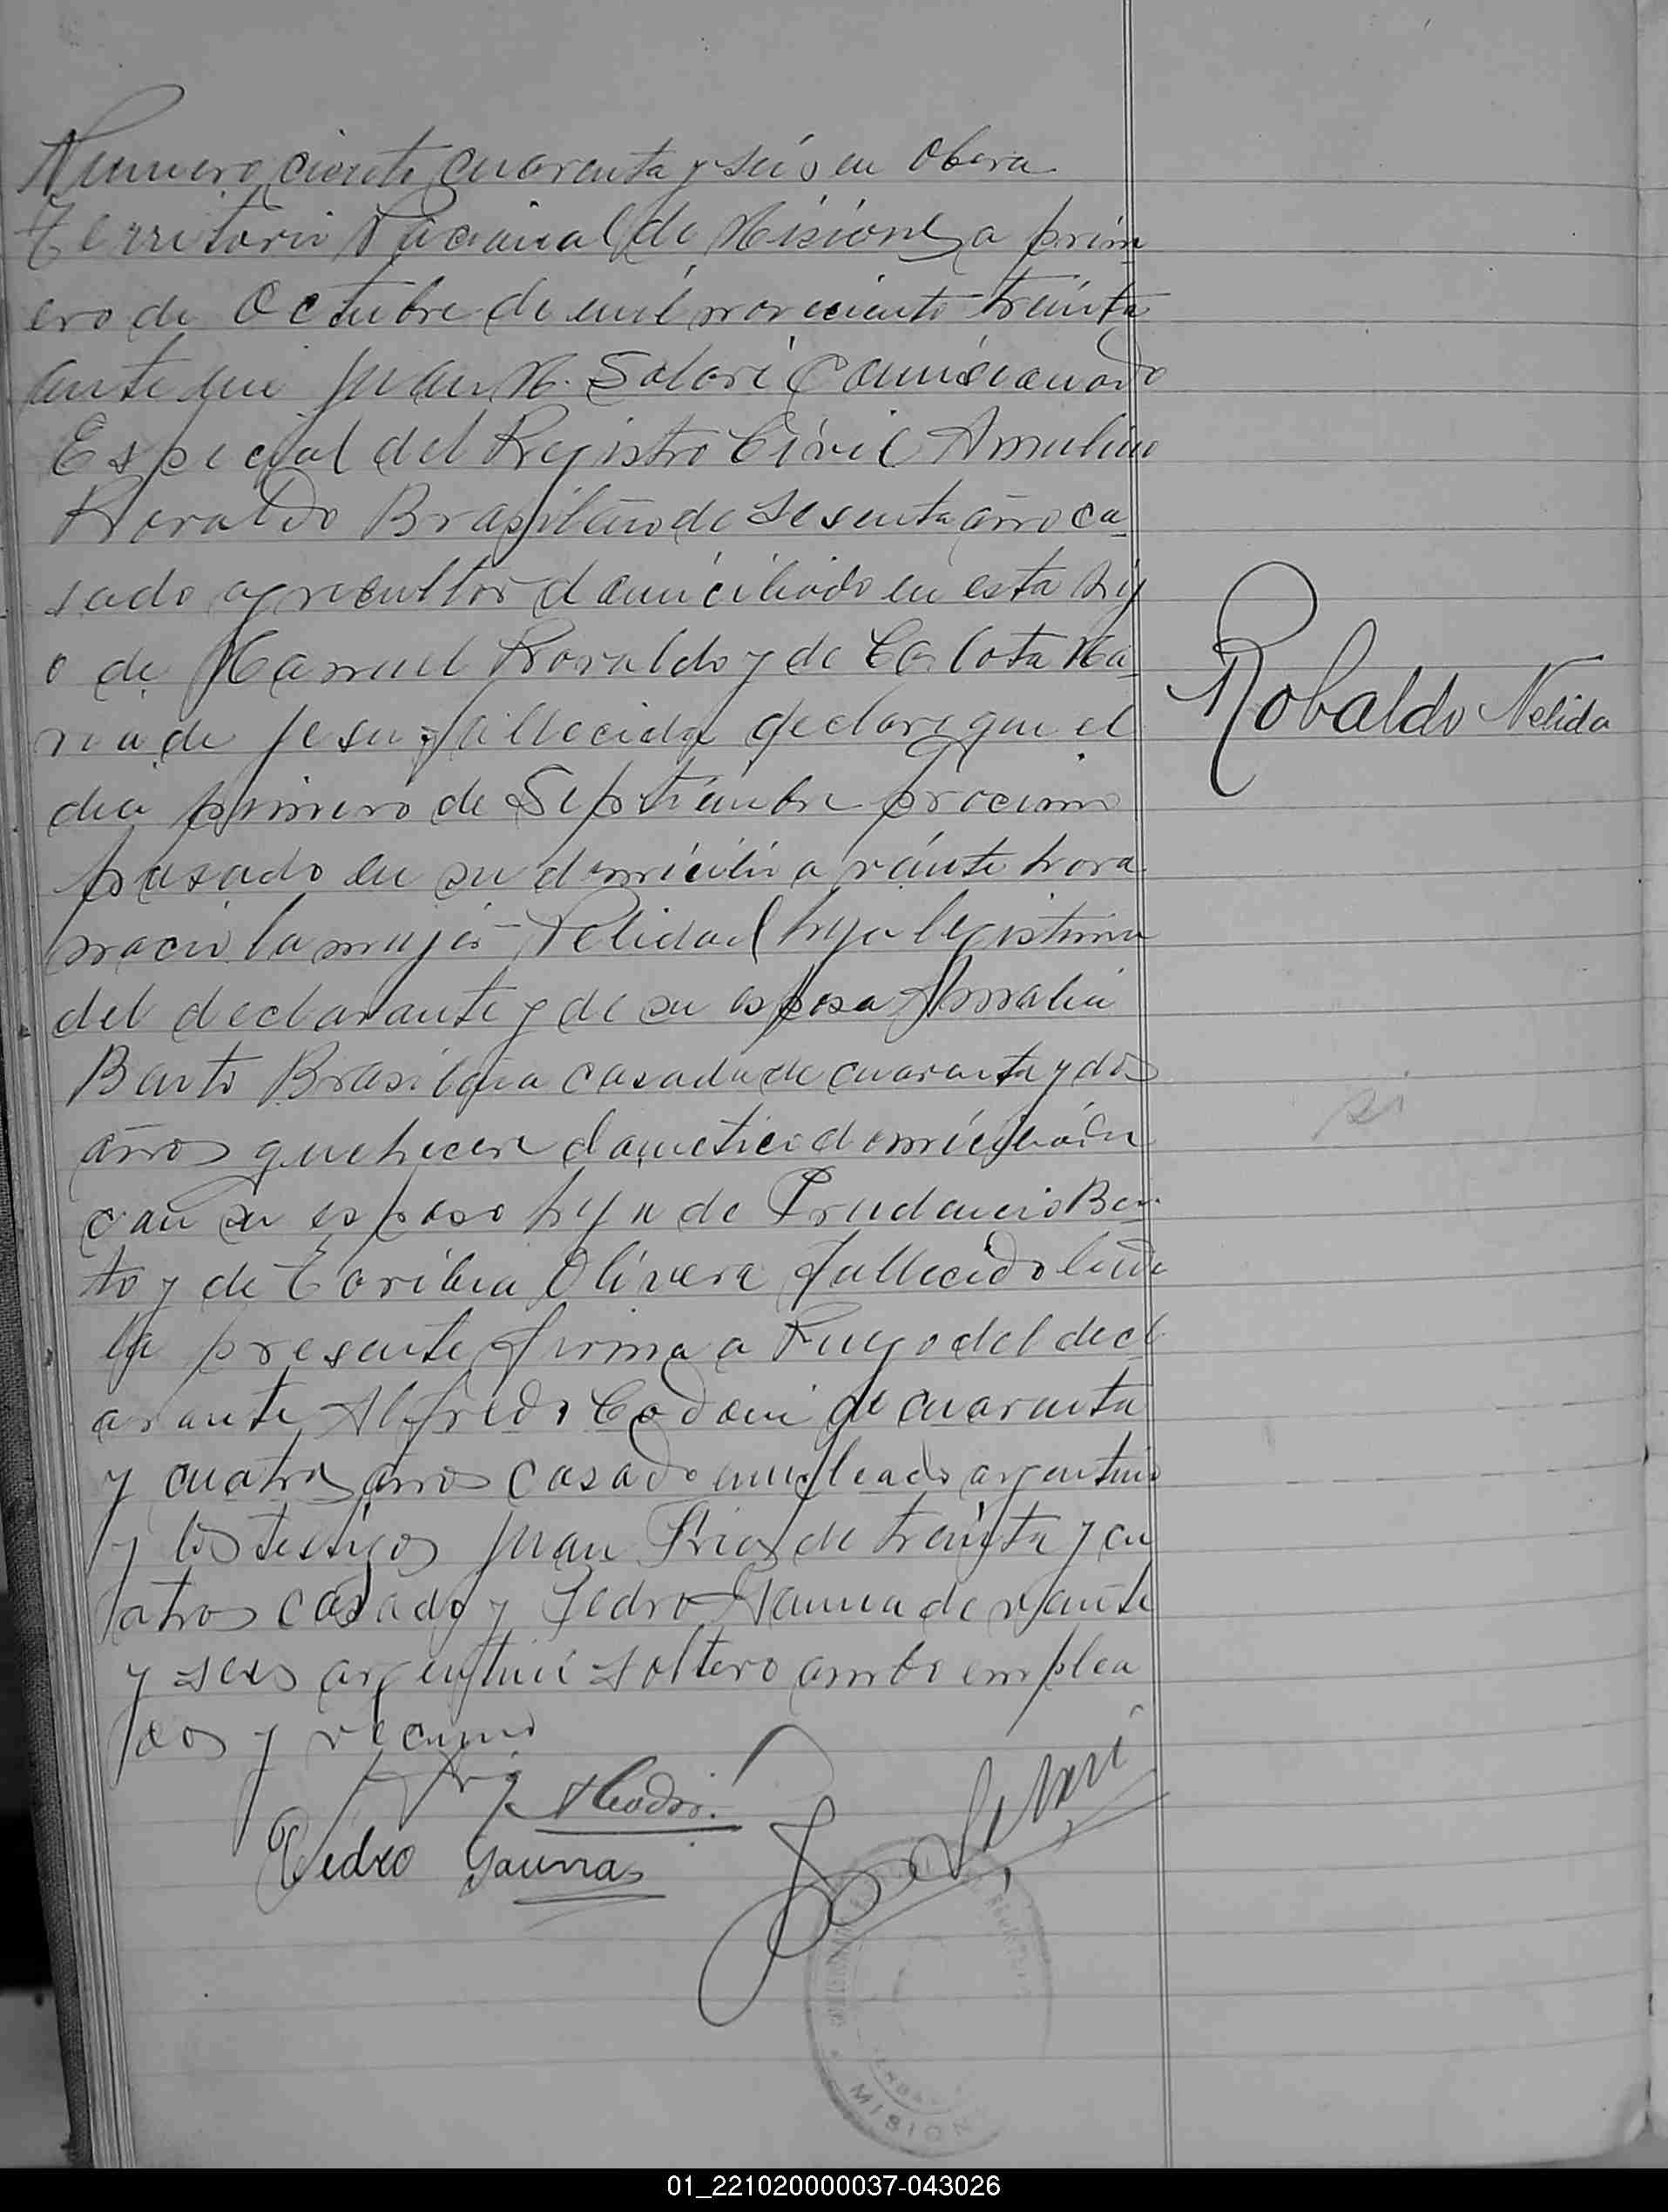 Numero ciento cuarenta y seis en Obera
Territorio Nacional de Misiones a prim
ero de Octubre de mil noveciento treinta
ante mi Juan M. Solari Comisionado
Especial del Registro Civil Amulino
Rovaldo Brasilero de sesenta año ca
sado agricultor domiciliado en esta hij
o de Manuel Rovaldo y de Carlota Ma
ria de Jesus fallecida declaro que el
dia primero de Septiembre procimo
pasado en su domicilio a veinte hora
nacio la mujer Nelida hija legistima
del declarante y de su esposa Amalia
Bento Brasileña casada de cuarenta y dos
años quehacere domestico domiciliada
con su esposo hija de Prudencio Ben
to y de Toribia Olivera fallecido leida
la presente firma a Ruego del decl
arante Alfredo Codoni de cuarenta
y cuatro años casado empleado argentino
y los testigos Juan Frias de treinta y cu
atros casado y Pedro Gauna de veinte
y seis argentini soltero ambo emplea
dos y vecino
Robaldo Nelida
si
ACodoni
Pedro Gauna
Solari
MISION
01_221020000037-043026